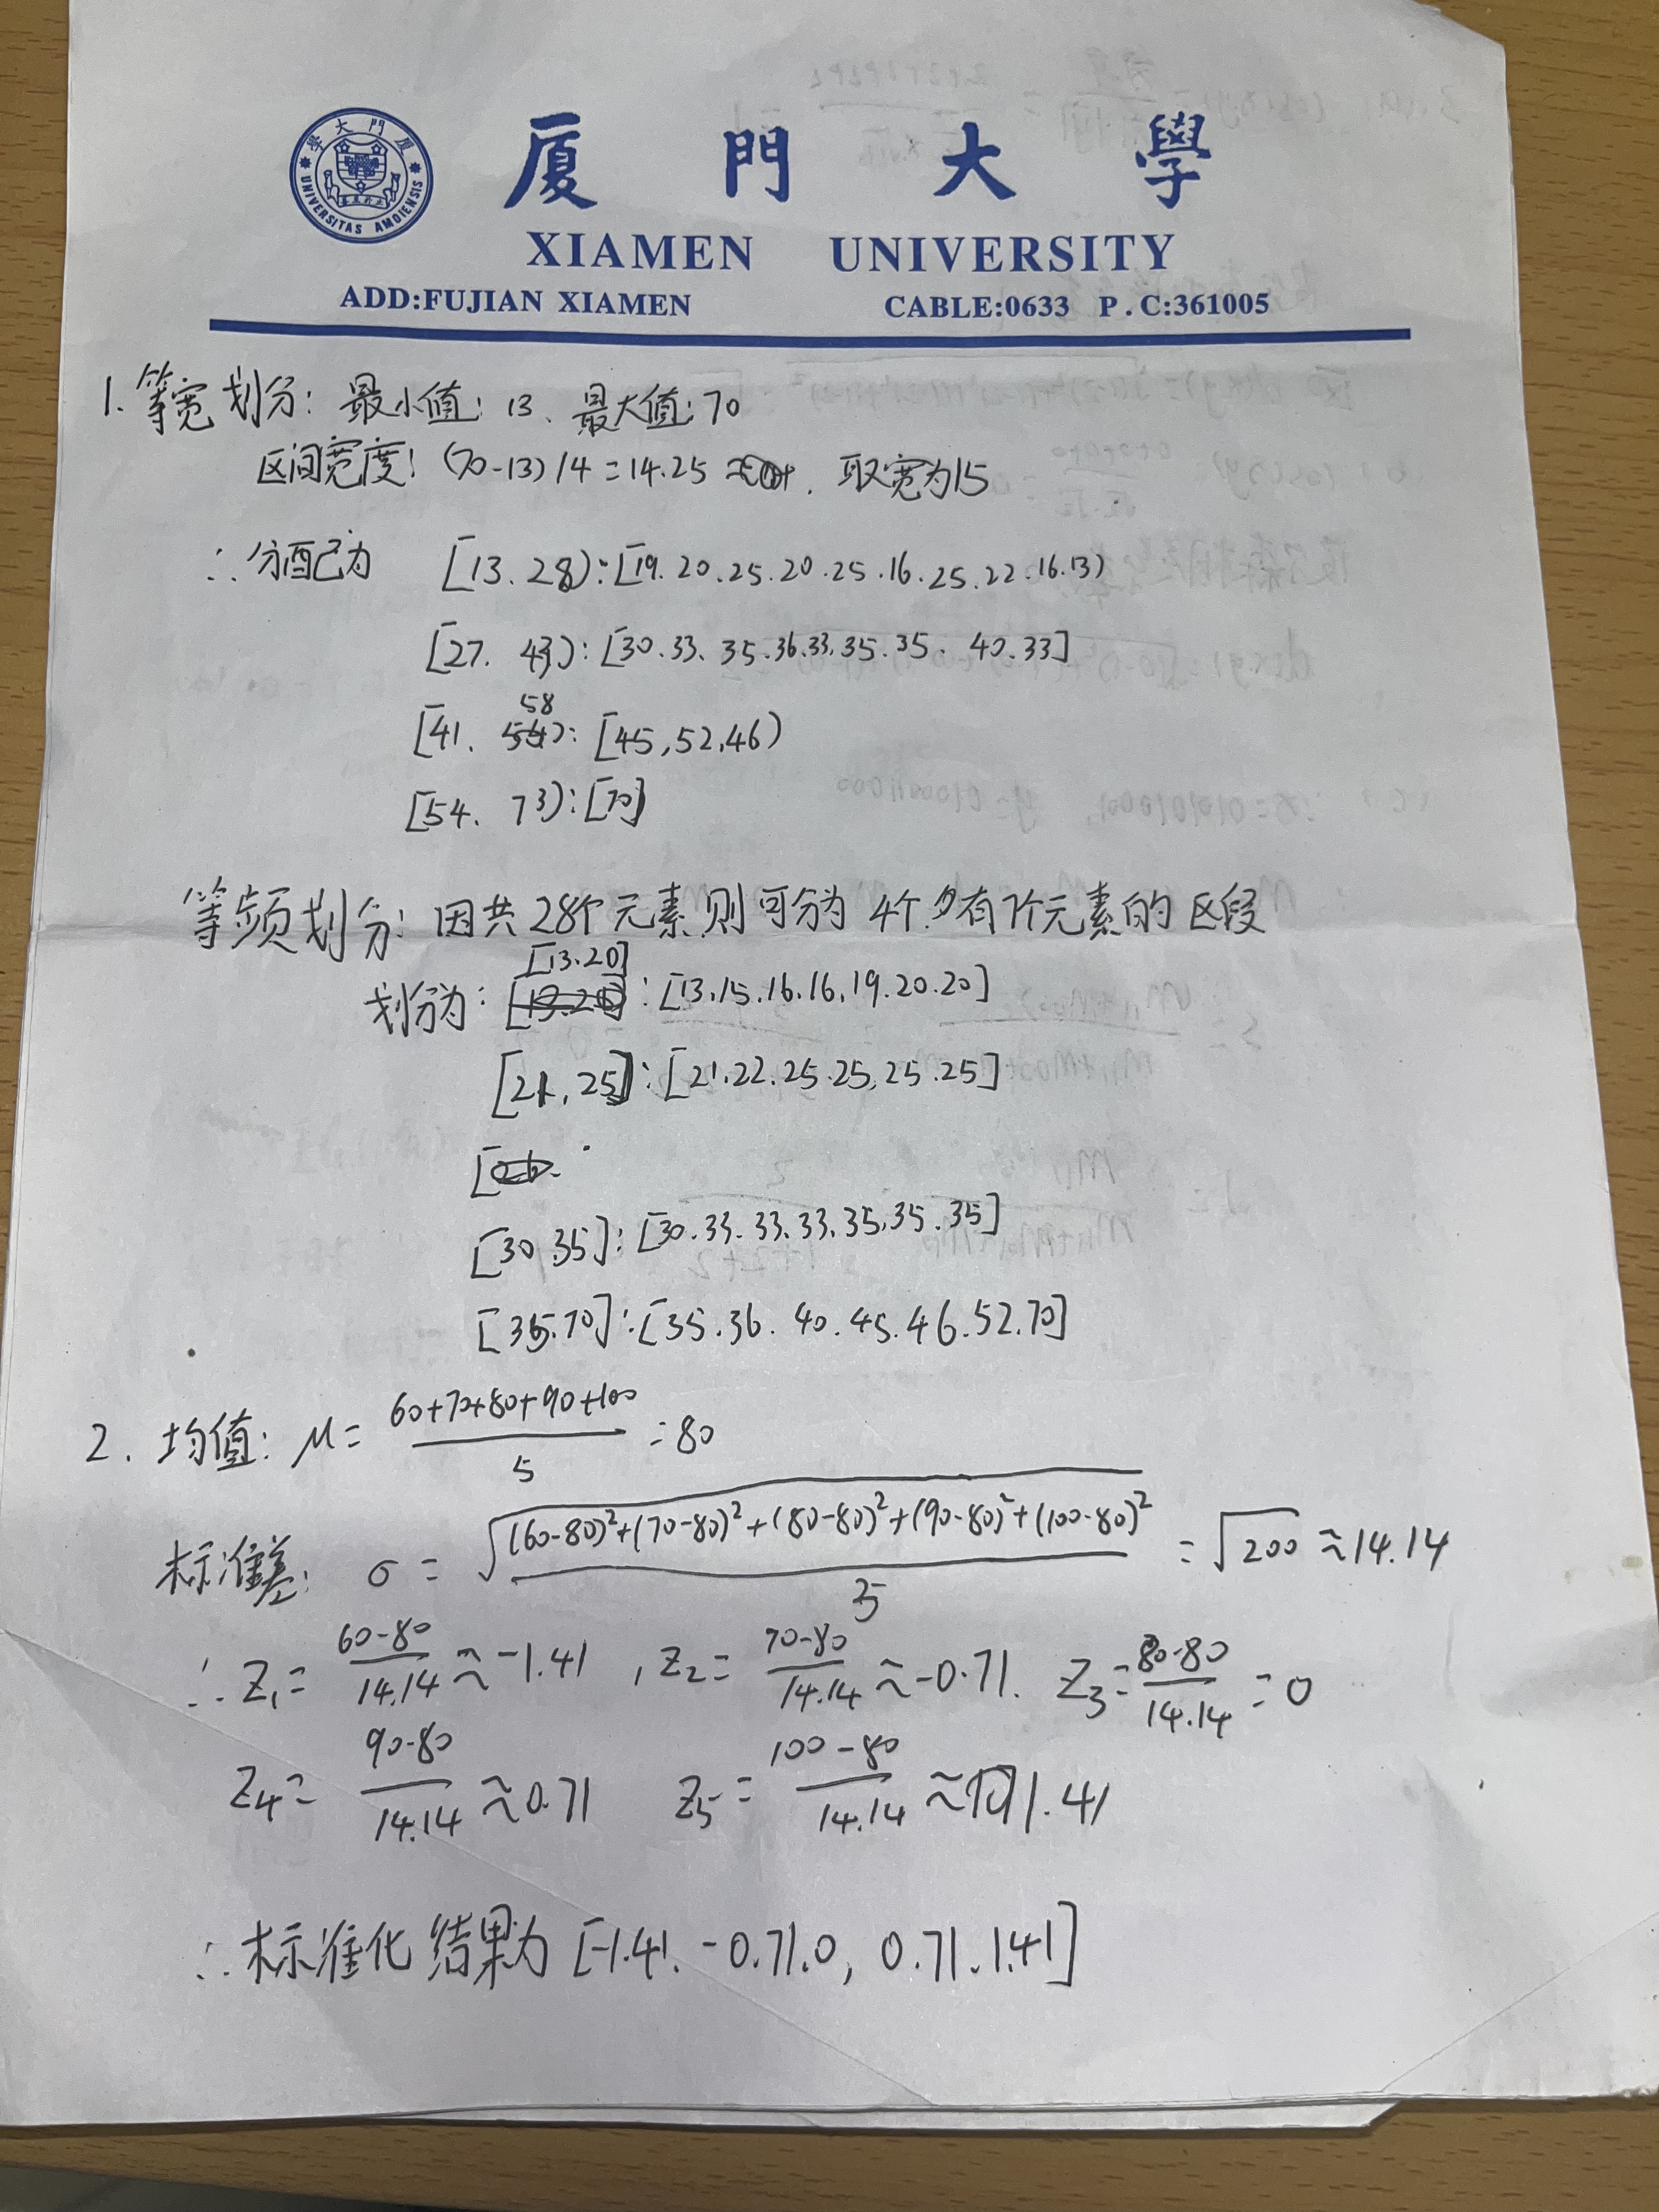 厦門大學
廈門大學
UNIVERSITAS AMOIENSIS
XIAMEN UNIVERSITY
ADD:FUJIAN XIAMEN CABLE:0633 P.C:361005
1. 等宽划分: 最小值: 13、最大值: 70
区间宽度: (70-13)/4=14.25 . 取宽为15
∴分配为 [13.28):[19.20.25.20.25.16.25.22.16.13)
[27. 43):[30.33、35.36.33.35.35. 40.33]
58
[41. 54):[45,52,46)
[54. 73):[70]
等频划分: 因共28个元素则可分为4个各有7个元素的区段
[13.20]
划分为: : [13.15.16.16,19.20.20]
[21,25]:[21.22.25.25,25.25]
[
[30.35]:[30.33.33.33.35.35.35]
[35.70]:[35.36.40.45.46.52.70]
2. 均值: μ= 60+70+80+90+100 / 5 =80
标准差: σ = √ (60-80)²+(70-80)²+(80-80)²+(90-80)²+(100-80)² / 5 = √200 ≈14.14
∴Z₁= 60-80 / 14.14 ≈-1.41 , Z₂= 70-80 / 14.14 ≈-0.71. Z₃= 80-80 / 14.14 =0
Z₄= 90-80 / 14.14 ≈0.71 Z₅= 100-80 / 14.14 ≈1.41
∴标准化结果为[-1.41. -0.71.0, 0.71.1.41]